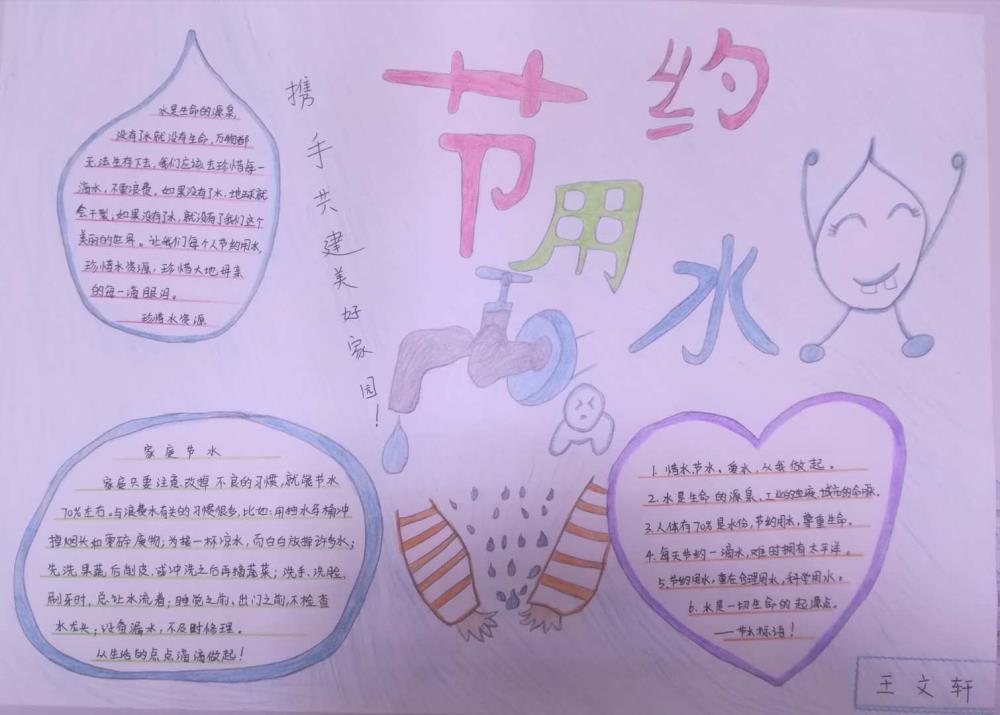 节约用水
携手共建美好家园！
水是生命的源泉
没有了水就没有生命，万物都
无法生存下去，我们应该去珍惜每一
滴水，不要浪费。如果没有了水，地球就
会干裂；如果没有了水，就没有了我们这个
美丽的世界。让我们每个人节约用水，
珍惜水资源，珍惜大地母亲
的每一滴眼泪。
珍惜水资源
家庭节水
家庭只要注意改掉不良的习惯，就能节水
70%左右。与浪费水有关的习惯很多，比如：用抽水马桶冲
掉烟头和零碎废物；为接一杯凉水，而白白放掉许多水；
先洗果蔬后削皮，或冲洗之后再摘蔬菜；洗手、洗脸、
刷牙时，总让水流着；睡觉之前、出门之前，不检查
水龙头；设备漏水，不及时修理。
从生活的点点滴滴做起！
1. 惜水、节水、爱水，从我做起。
2. 水是生命的源泉、工业的血液、城市的命脉。
3. 人体有70%是水份，节约用水，尊重生命。
4. 每天节约一滴水，难时拥有太平洋。
5. 节约用水，重在合理用水，科学用水。
6. 水是一切生命的起源点。
——节水标语！
王文轩